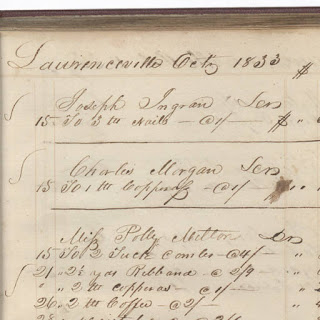 Laurenceville Octr 1833 $
Joseph Ingram Senr
15 To 3 lb Nails — @1/— $ "
Charles Morgan Senr
15 To 1 lb Copperas — @1/—
Miss Polly Melton Dr
15 To 2 Tuck Combs — @4/— "
21 " 2½ yds Ribband @ 2/3 — "
" " 2 lb copperas — @1/— "
26 " 2 lb Coffee — @2/— "